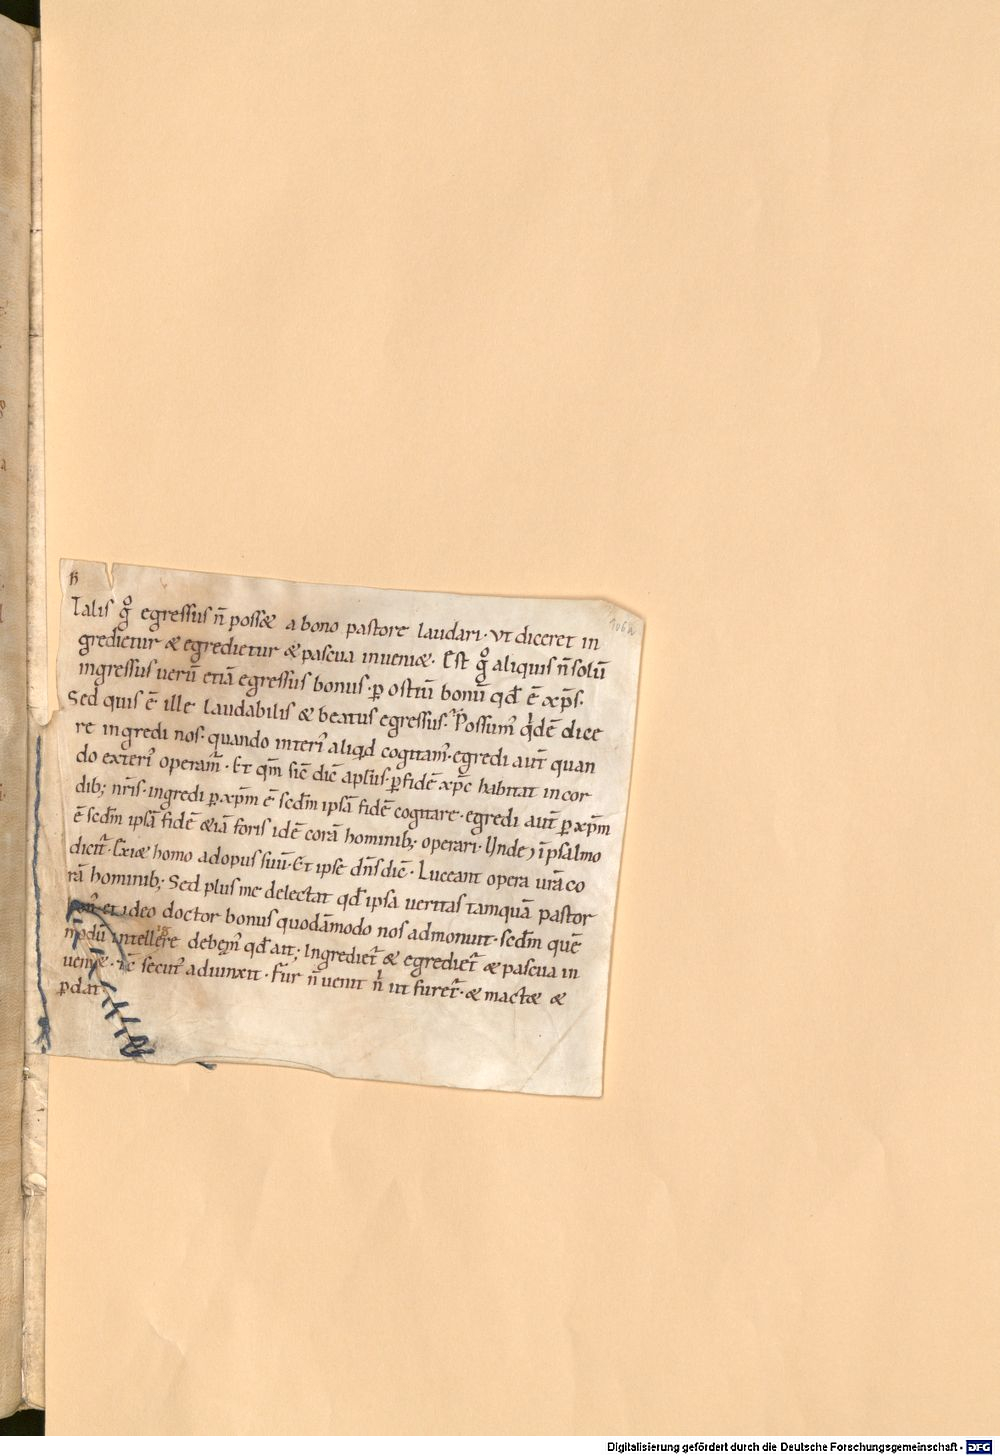 B
106a
Talis gͦ egressus n̄ possæ a bono pastore laudari · vt diceret in
gredietur & egredietur & pascua inueniæ · Est gͦ aliquis n̄ solū
ingressus uerū etiā egressus bonus · ꝑ ostiū bonū qđ ē xp̄s ·
Sed quis ē ille laudabilis & beatus egressus · Possum᷒ q'dē dice
re ingredi nos · quando interi᷒ aliqd cogitam᷒ · egredi aut̄ quan
do exteri᷒ operam᷒ · Et qm̄ sic̄ dic̄ apl̄us · ꝑ fidē xp̄c habitat in cor
dib; nr̄is · ingredi ꝑ xp̄m ē scđm ipsā fidē cogitare · egredi aut̄ ꝑ xp̄m
ē scđm ipsā fidē &iā foris idē corā hominib; operari · Unde ⁊ ī psalmo
dicit᷒ · Exiæ homo ad opus suū · Et ipse dn̄s dic̄ · Luceant opera ur̄a co
rā hominib; Sed plus me delectat qđ ipsa ueritas tamquā pastor
bon᷒ et ideo doctor bonus quodāmodo nos admonuit · scđm quē
modū intellere debem᷒ qđ ait; Ingrediet᷒ & egrediet᷒ & pascua in
ueniæ · cū secut᷒ adiunxit · Fur n̄ uenit n̄ ut furet᷒ · & mactæ &
ꝑdat
Digitalisierung gefördert durch die Deutsche Forschungsgemeinschaft - DFG